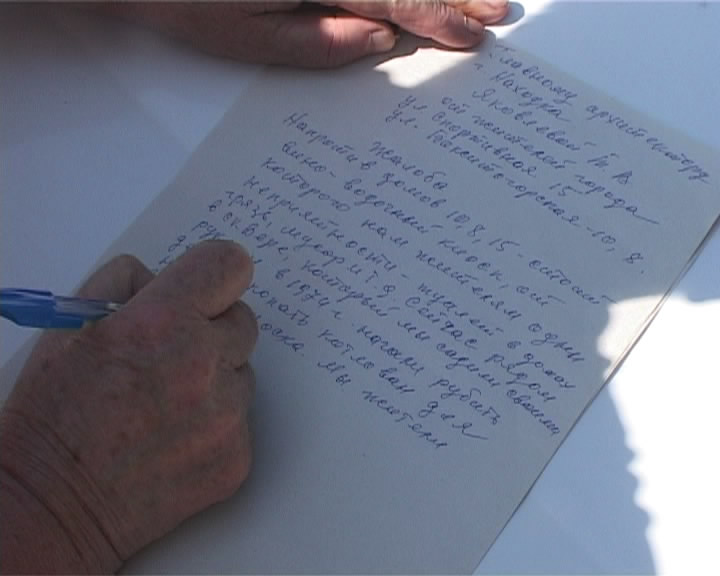 Главному архитектору
г. Находка
Яковлевой Т. А.
от жителей города
ул. Спортивная 15
ул. Бокситогорская-10, 8.
Жалоба
Напротив домов 10, 8, 15 - стоит
вино-водочный киоск, от
которого нам жителям одни
неприятности - туалет в домах
грязь, мусор и т. д. Сейчас рядом
в сквере, который мы садили своими
руками в 1974 г. начали рубить
копать котлован для
киоска мы жители